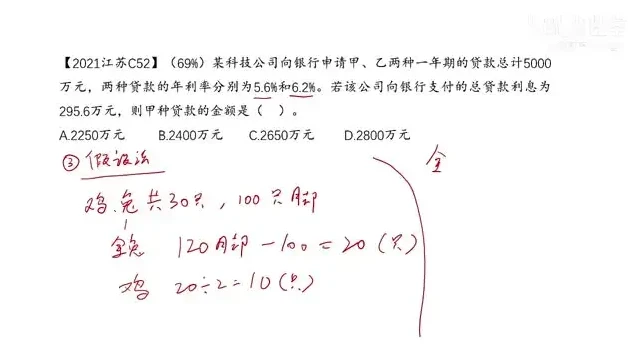 【2021江苏C52】（69%）某科技公司向银行申请甲、乙两种一年期的贷款总计5000
万元，两种贷款的年利率分别为5.6%和6.2%。若该公司向银行支付的总贷款利息为
295.6万元，则甲种贷款的金额是（ ）。
A.2250万元 B.2400万元 C.2650万元 D.2800万元
③ 假设法
鸡.兔共30只，100只脚
全兔 120脚-100=20（只）
鸡 20÷2=10（只）
全